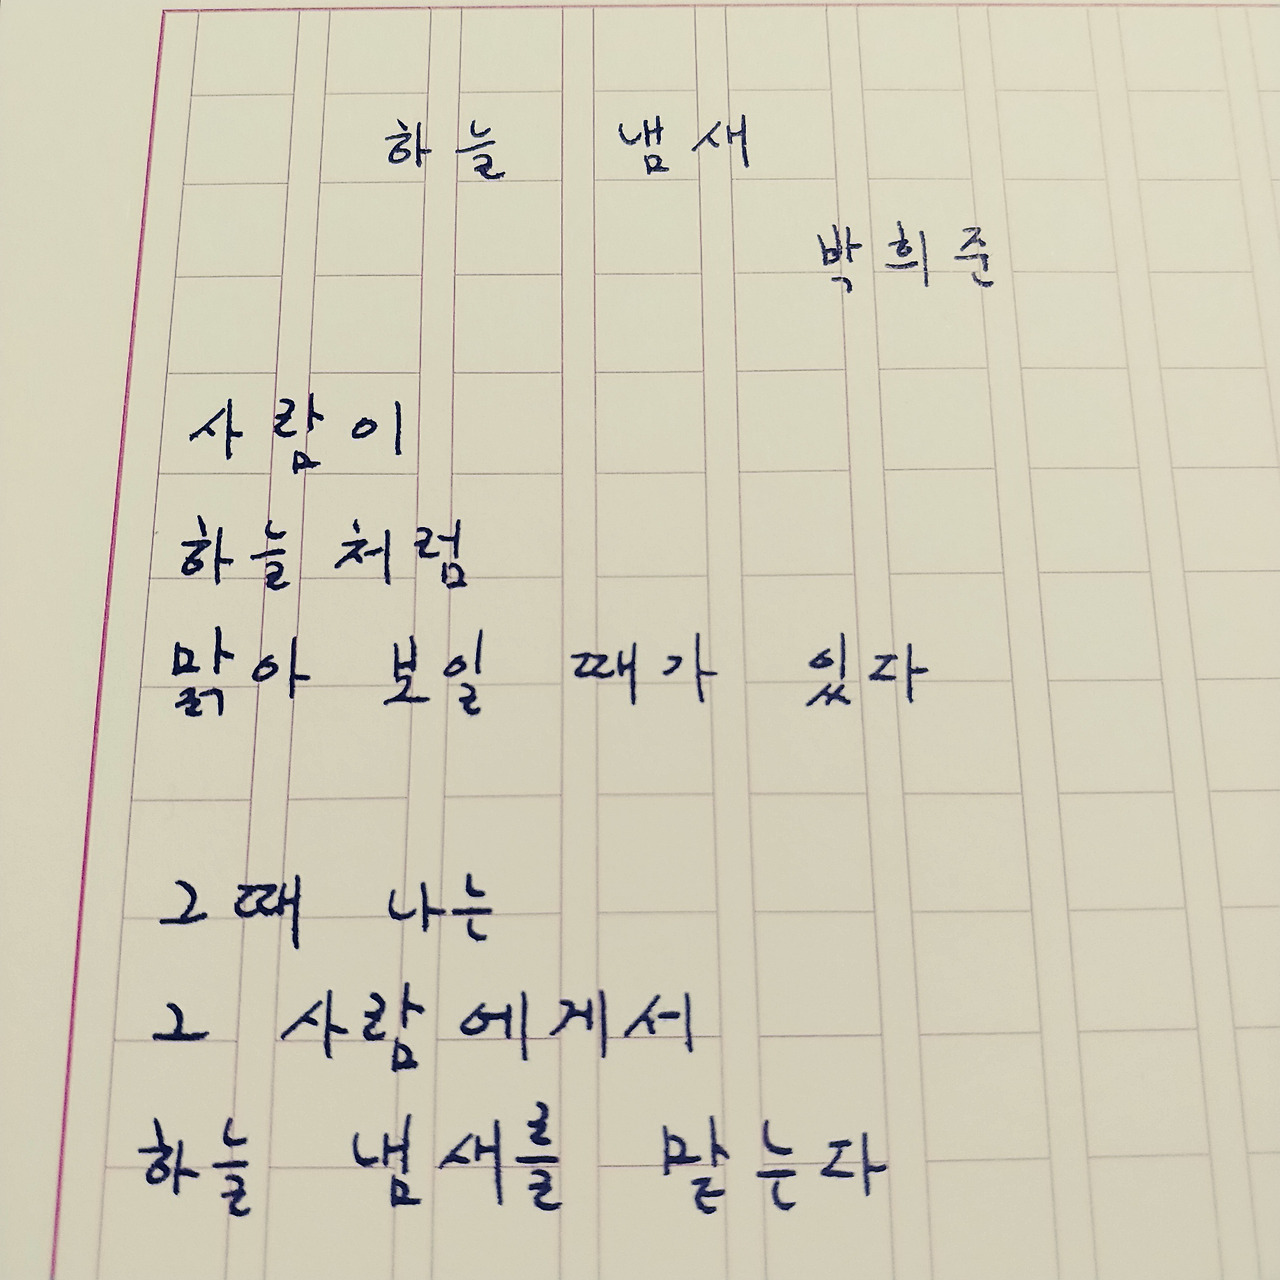 하늘 냄새
박희준
사람이
하늘처럼
맑아 보일 때가 있다
그때 나는
그 사람에게서
하늘 냄새를 맡는다